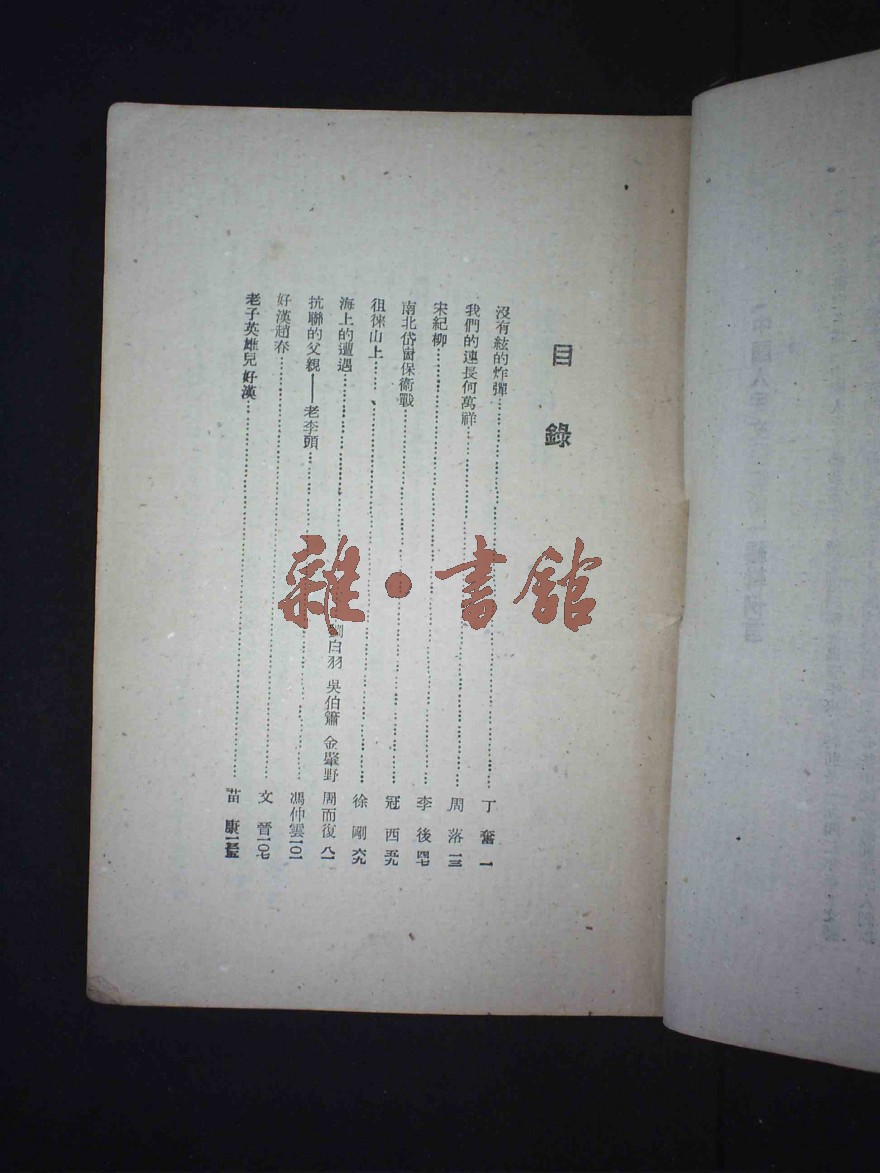 目錄
沒有絃的炸彈 丁奮 一
我們的連長何萬祥 周落 一三
宋紀柳 李後 四七
南北岱崮保衛戰 冠西 五九
徂徠山上 徐剛 六九
海上的遭遇 劉白羽 吳伯簫 金肇野 周而復 八一
抗聯的父親——老李頭 馮仲雲 一〇一
好漢趙春 文晉 一〇七
老子英雄兒好漢 苗康
雜·書館